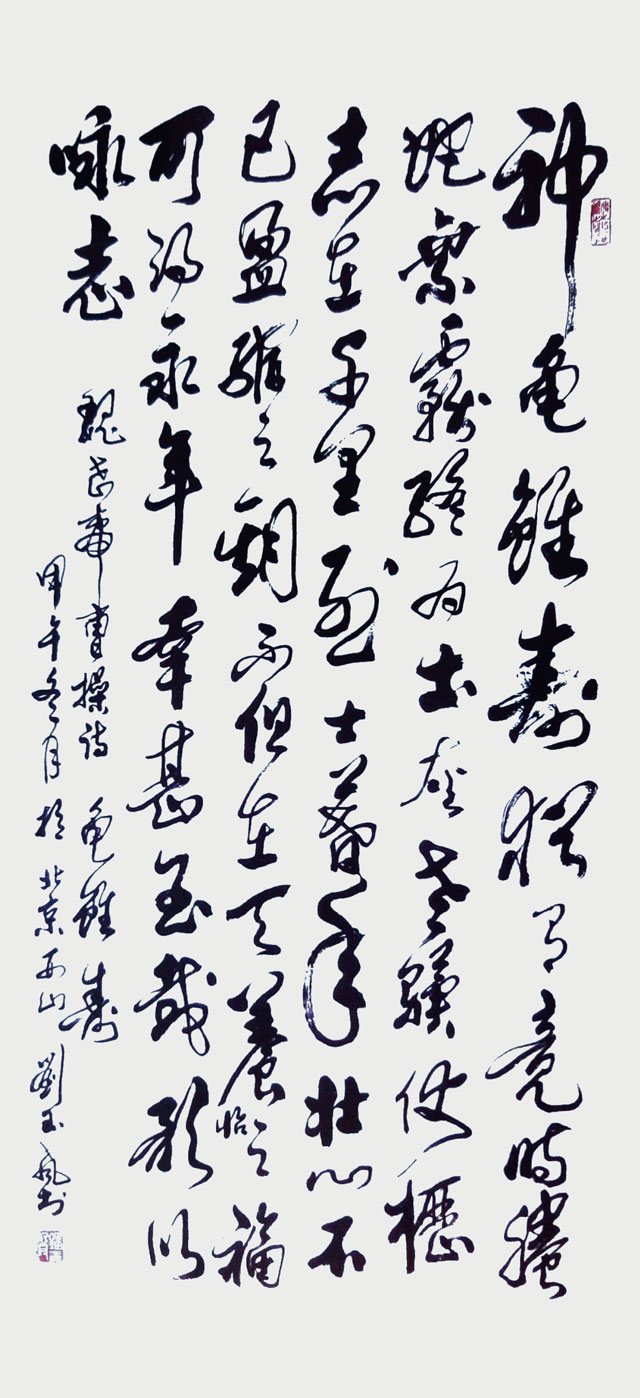 神龟雖寿猶有竟時螣
蛇乘霧終为土灰老驥伏櫪
志在千里烈士暮年壮心不
已盈縮之期不但在天養怡之福
可得永年幸甚至哉歌以
咏志
魏武帝曹操诗 龟雖寿
甲午冬月於北京西山 劉玉书